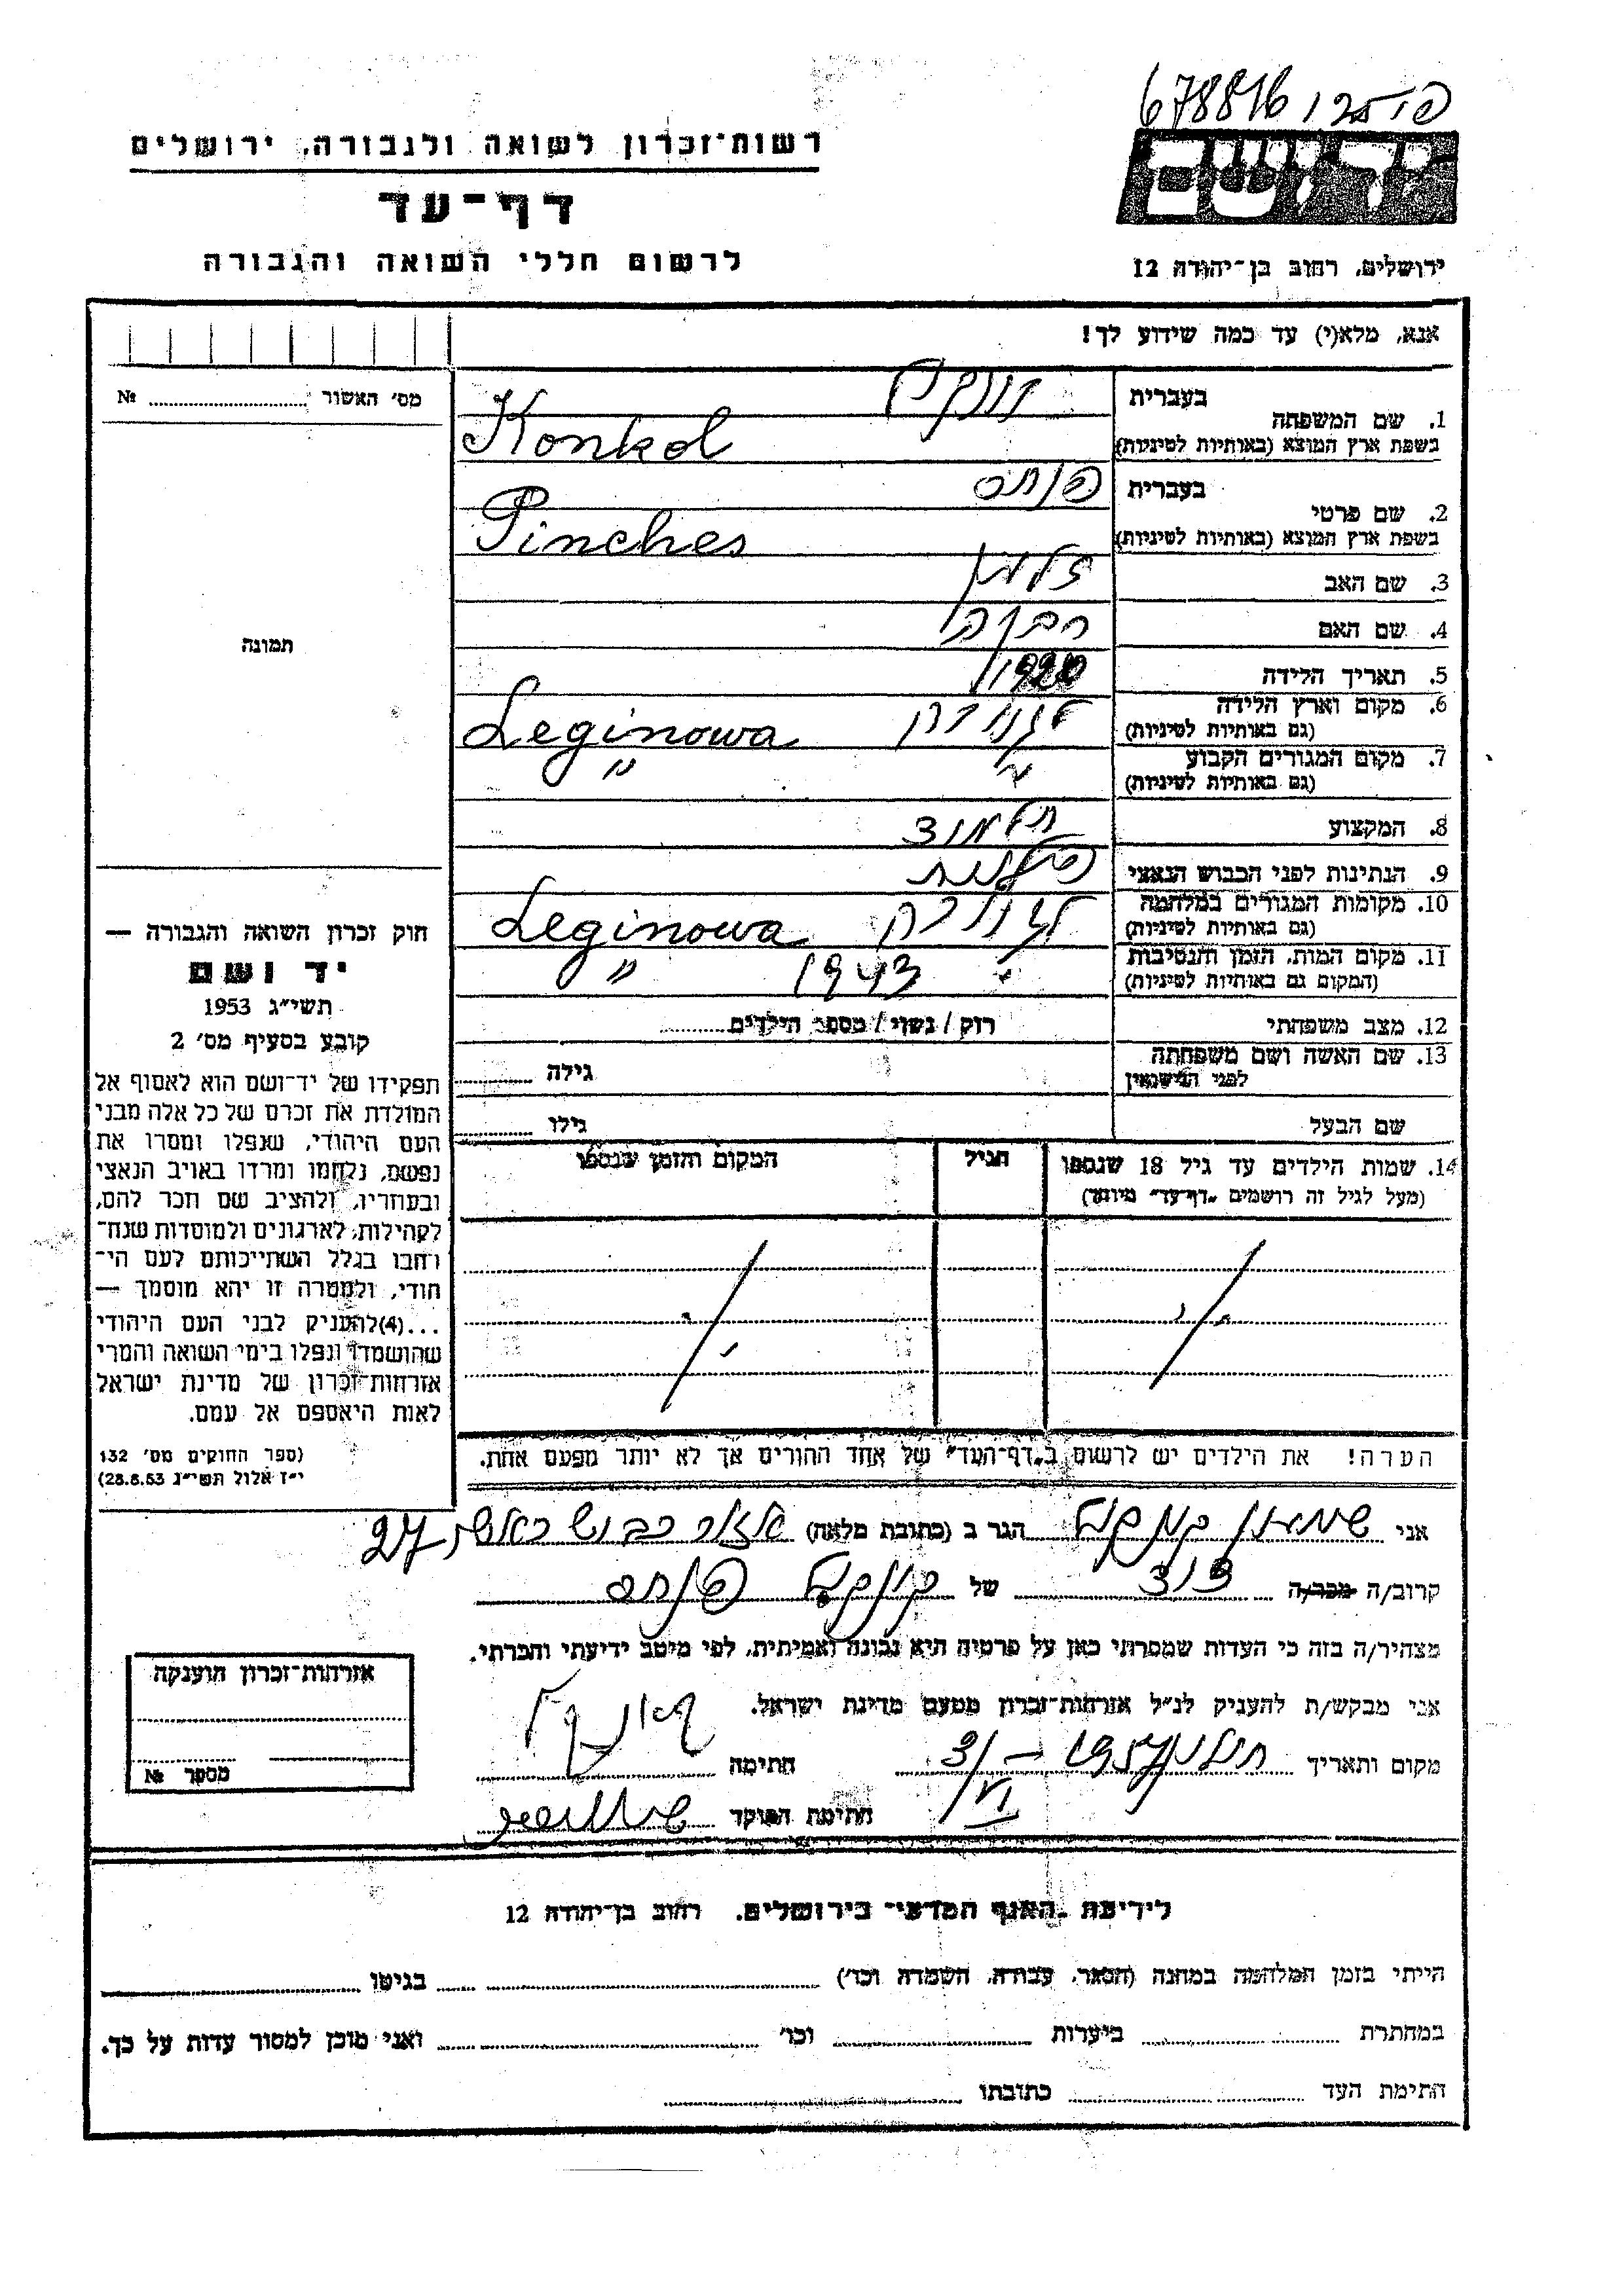 678816
רשות־זכרון לשואה ולגבורה, ירושלים
יד ושם
דף־עד
לרשום חללי השואה והגבורה
ירושלים, רחוב בן־יהודה 12
אנא, מלא(י) עד כמה שידוע לך!
מס' האשור № 
1. שם המשפחה בעברית
בשפת ארץ המוצא (באותיות לטיניות) Konkol
2. שם פרטי בעברית פנחס
בשפת ארץ המוצא (באותיות לטיניות) Pinches
3. שם האב זלמן
4. שם האם רבקה
5. תאריך הלידה
6. מקום וארץ הלידה Leginowa
(גם באותיות לטיניות)
7. מקום המגורים הקבוע "
(גם באותיות לטיניות)
8. המקצוע תלמיד
9. הנתינות לפני הכבוש הנאצי פולנית
10. מקומות המגורים במלחמה Leginowa
(גם באותיות לטיניות)
11. מקום המות, הזמן והנסיבות 1943 "
(המקום גם באותיות לטיניות)
12. מצב משפחתי רוק / נשוי / מספר הילדים
13. שם האשה ושם משפחתה לפני הנישואין גילה
שם הבעל גילו
14. שמות הילדים עד גיל 18 שנספו הגיל המקום והזמן שנספו
(מעל לגיל זה רושמים „דף־עד" מיוחד)
הערה! את הילדים יש לרשום ב„דף־העד" של אחד ההורים אך לא יותר מפעם אחת.
תמונה
חוק זכרון השואה והגבורה —
יד ושם
תשי״ג 1953
קובע בסעיף מס' 2
תפקידו של יד־ושם הוא לאסוף אל
המולדת את זכרם של כל אלה מבני
העם היהודי, שנפלו ומסרו את
נפשם, נלחמו ומרדו באויב הנאצי
ובעוזריו, ולהציב שם וזכר להם,
לקהילות, לארגונים ולמוסדות שנח־
רחבו בגלל השתייכותם לעם הי־
הודי, ולמטרה זו יהא מוסמך —
...(4)להעניק לבני העם היהודי
שהושמדו ונפלו בימי השואה והמרי
אזרחות־זכרון של מדינת ישראל
לאות היאספם אל עמם.
(ספר החוקים מס' 132
י״ז אלול תשי״ג 28.8.53)
אני שמעון קונקול הגר ב (כתובת מלאה) 27
קרוב/ה מכר/ה דוד של קונקול פנחס
מצהיר/ה בזה כי העדות שמסרתי כאן על פרטיה היא נכונה ואמיתית, לפי מיטב ידיעתי והכרתי.
אני מבקש/ת להעניק לנ״ל אזרחות־זכרון מטעם מדינת ישראל.
מקום ותאריך חולון חתימה
חתימת הפוקד
אזרחות־זכרון הוענקה
מספר №
לידיעת „האגף המדעי" בירושלים, רחוב בן־יהודה 12
הייתי בזמן המלחמה במחנה (הסגר, עבודה, השמדה וכו') בגיטו
במחתרת ביערות וכו' ואני מוכן למסור עדות על כך.
חתימת העד כתובתו